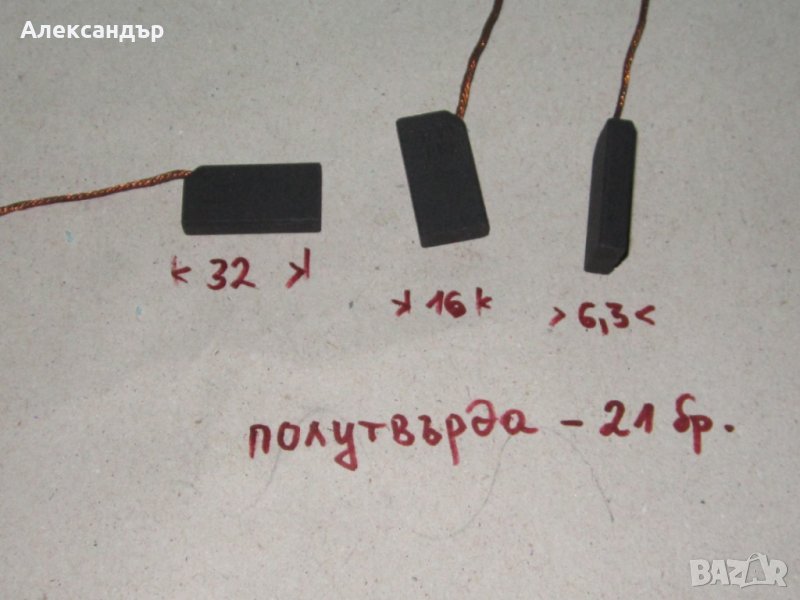 Александър
32
16
6,3
полутвърда - 21 бр.
BAZAR